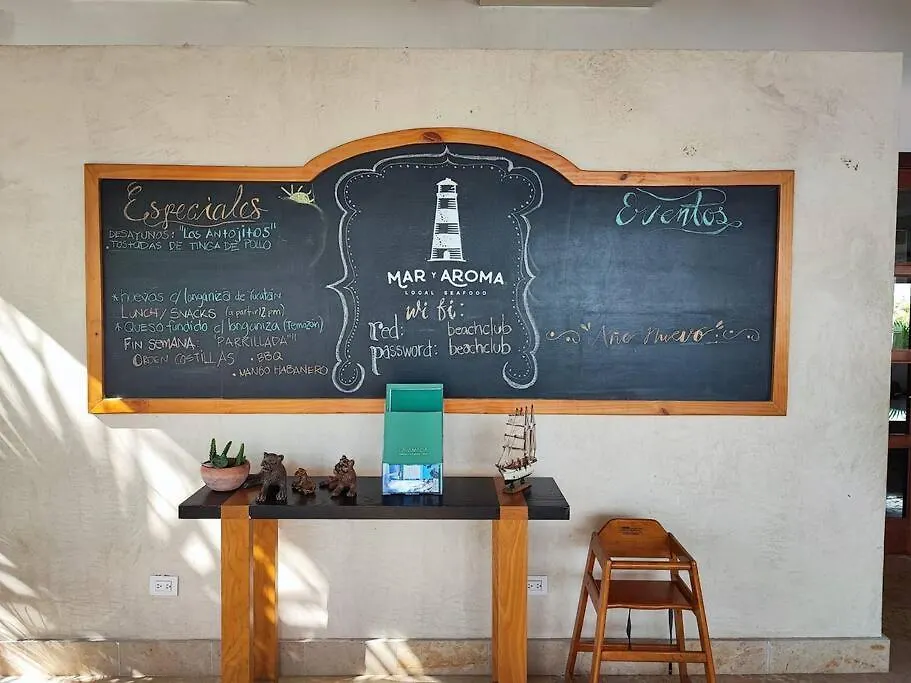 Especiales
DESAYUNOS: "LOS ANTOJITOS"
• TOSTADAS DE TINGA DE POLLO
* Huevos c/ longaniza de Yucatán
LUNCH/ SNACKS (a partir 12pm)
* QUESO fundido c/ longaniza (Temozón)
FIN SEMANA: "PARRILLADA"
ORDEN COSTILLAS • BBQ
• MANGO HABANERO
MAR Y AROMA
LOCAL SEAFOOD
wi fi:
red: beachclub
password: beachclub
Eventos
Año Nuevo